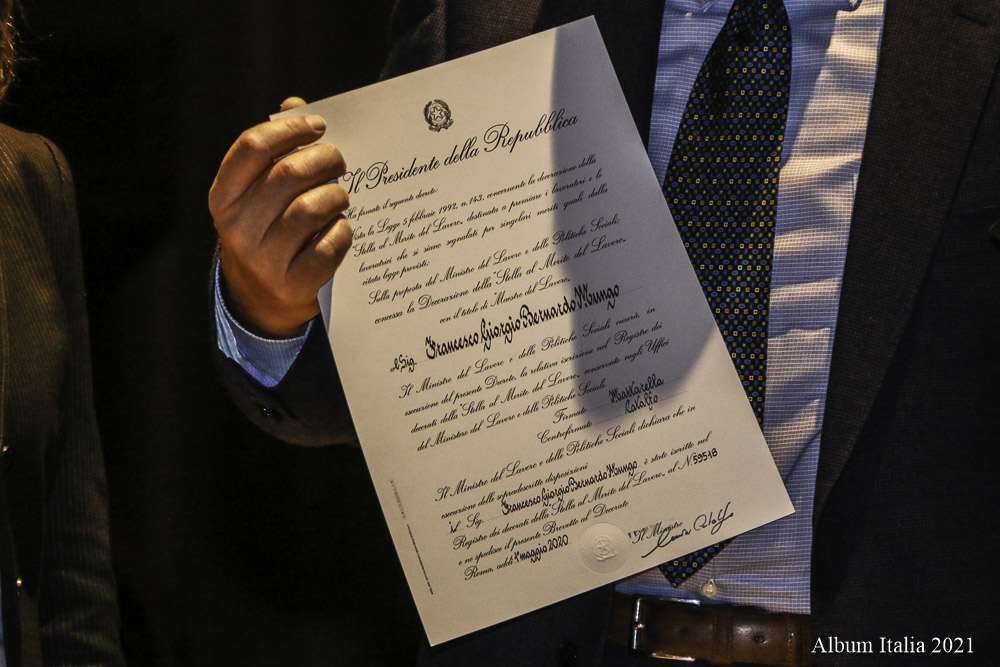 Il Presidente della Repubblica
Ha firmato il seguente decreto:
Vista la Legge 5 febbraio 1992, n. 143, concernente la decorazione della
"Stella al Merito del Lavoro", destinata a premiare i lavoratori e le
lavoratrici che si siano segnalati per singolari meriti quali dalla
citata legge previsti;
Sulla proposta del Ministro del Lavoro e delle Politiche Sociali;
concessa la Decorazione della "Stella al Merito del Lavoro"
con il titolo di "Maestro del Lavoro"
al Sig. Francesco Giorgio Bernardo Mungo
Il Ministro del Lavoro e delle Politiche Sociali curerà, in
esecuzione del presente Decreto, la relativa iscrizione nel Registro dei
decorati della "Stella al Merito del Lavoro", conservato negli Uffici
del Ministero del Lavoro e delle Politiche Sociali.
Firmato Mattarella
Controfirmato Catalfo
Il Ministro del Lavoro e delle Politiche Sociali dichiara che in
esecuzione delle sopradescritte disposizioni
il Sig. Francesco Giorgio Bernardo Mungo è stato iscritto nel
Registro dei decorati della "Stella al Merito del Lavoro", al N. 59518
e ne spedisce il presente Brevetto al Decorato
Roma, addì 1° maggio 2020
Il Ministro
Album Italia 2021